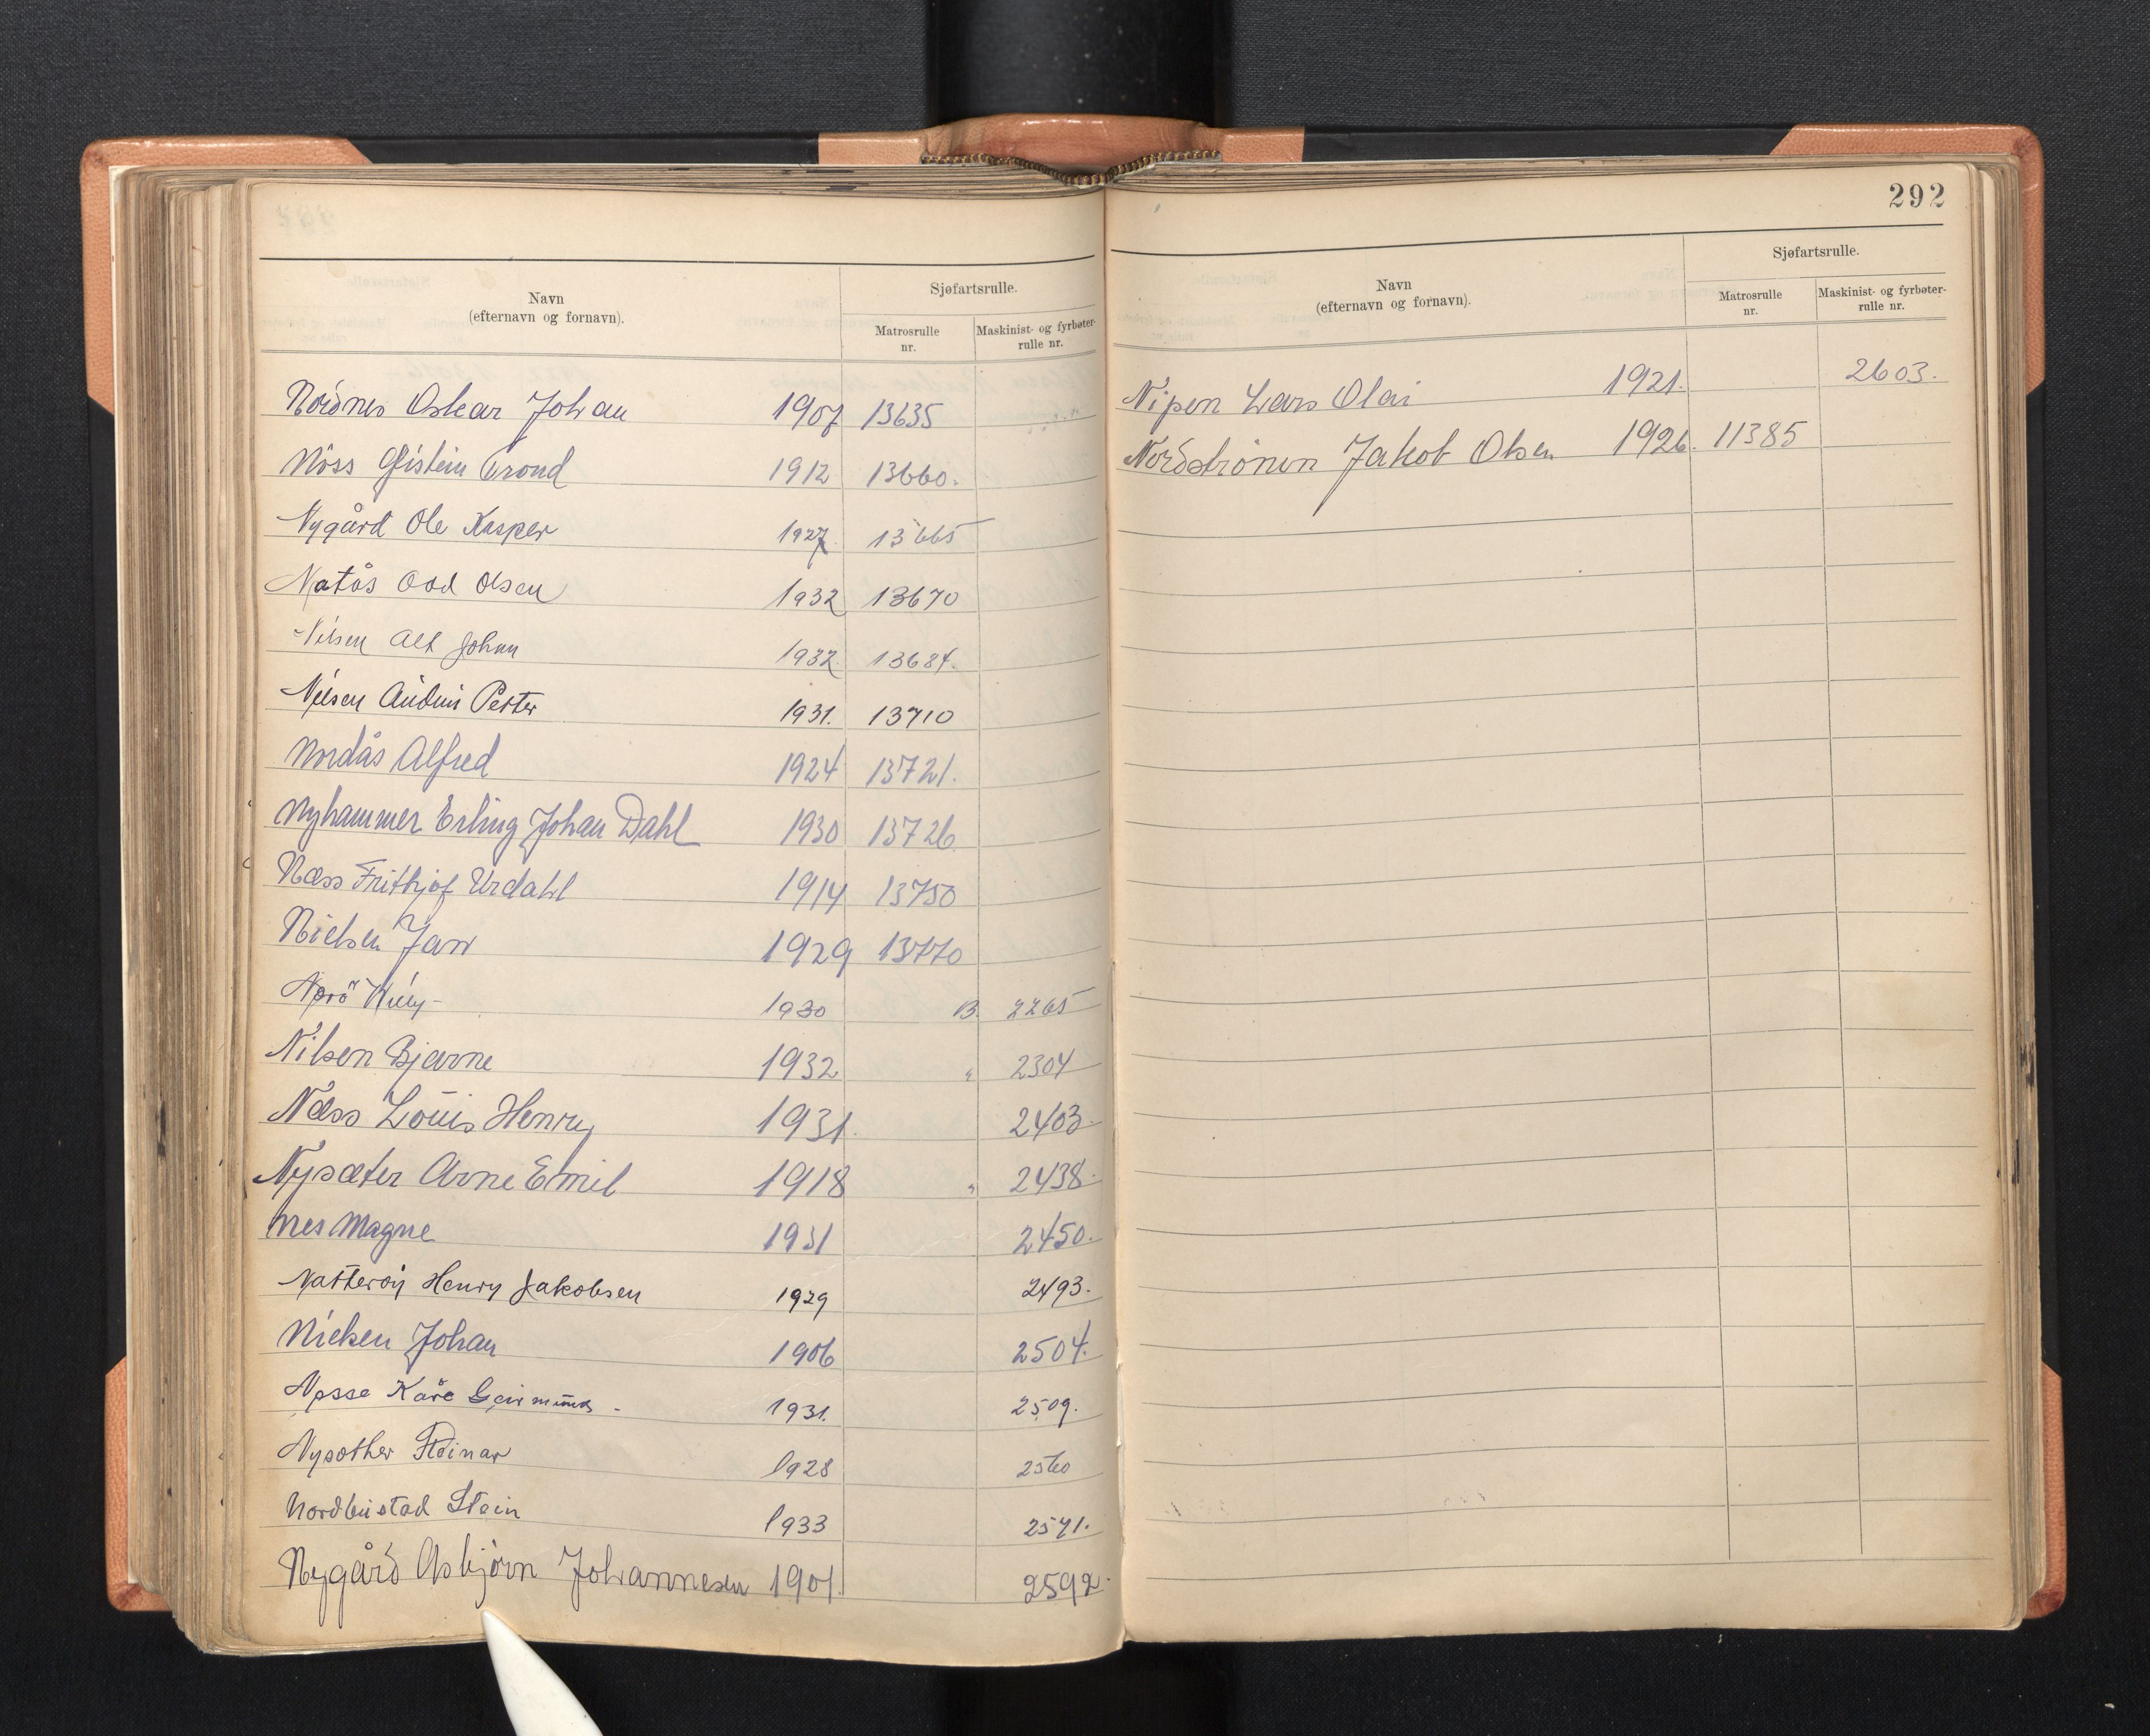 Navn
(efternavn og fornavn).
Sjøfartsrulle.
Matrosrulle
nr.
Maskinist- og fyrbøter-
rulle nr.
Nordnes Oskar Johan 1907 13635
Nöss Øistein Trond 1912 13660.
Nygård Ole Kasper 1927 13665
Natås Odd Olsen 1932 13670
Nilsen Alf Johan 1932 13684.
Nilsen Andreas Petter 1931. 13710
Nordås Alfred 1924 13721.
Nyhammer Erling Johan Dahl 1930 13726
Næss Frithjof Urdahl 1914 13750
Nielsen Jan 1929 13770
1930 B. 2265
Nilsen Bjarne 1932 " 2304
Næss Louis Henry 1931. 2403.
Nysæter Arne Emil 1918 " 2438.
Nes Magne 1931 2450.
Natterøy Henry Jakobsen 1929 2493.
Nielsen Johan 1906 2504.
Nesse Kåre Geirmund - 1931. 2509.
Nysæther Steinar 1928 2560
Nordbustad Stein 1933 2571.
Nygård Asbjörn Johannesen 1901. 2592.
292
Navn
(efternavn og fornavn).
Sjøfartsrulle.
Matrosrulle
nr.
Maskinist- og fyrbøter-
rulle nr.
Nipen Lars Olai 1921. 2603.
Nordströnen Jakob Olsen 1926. 11385